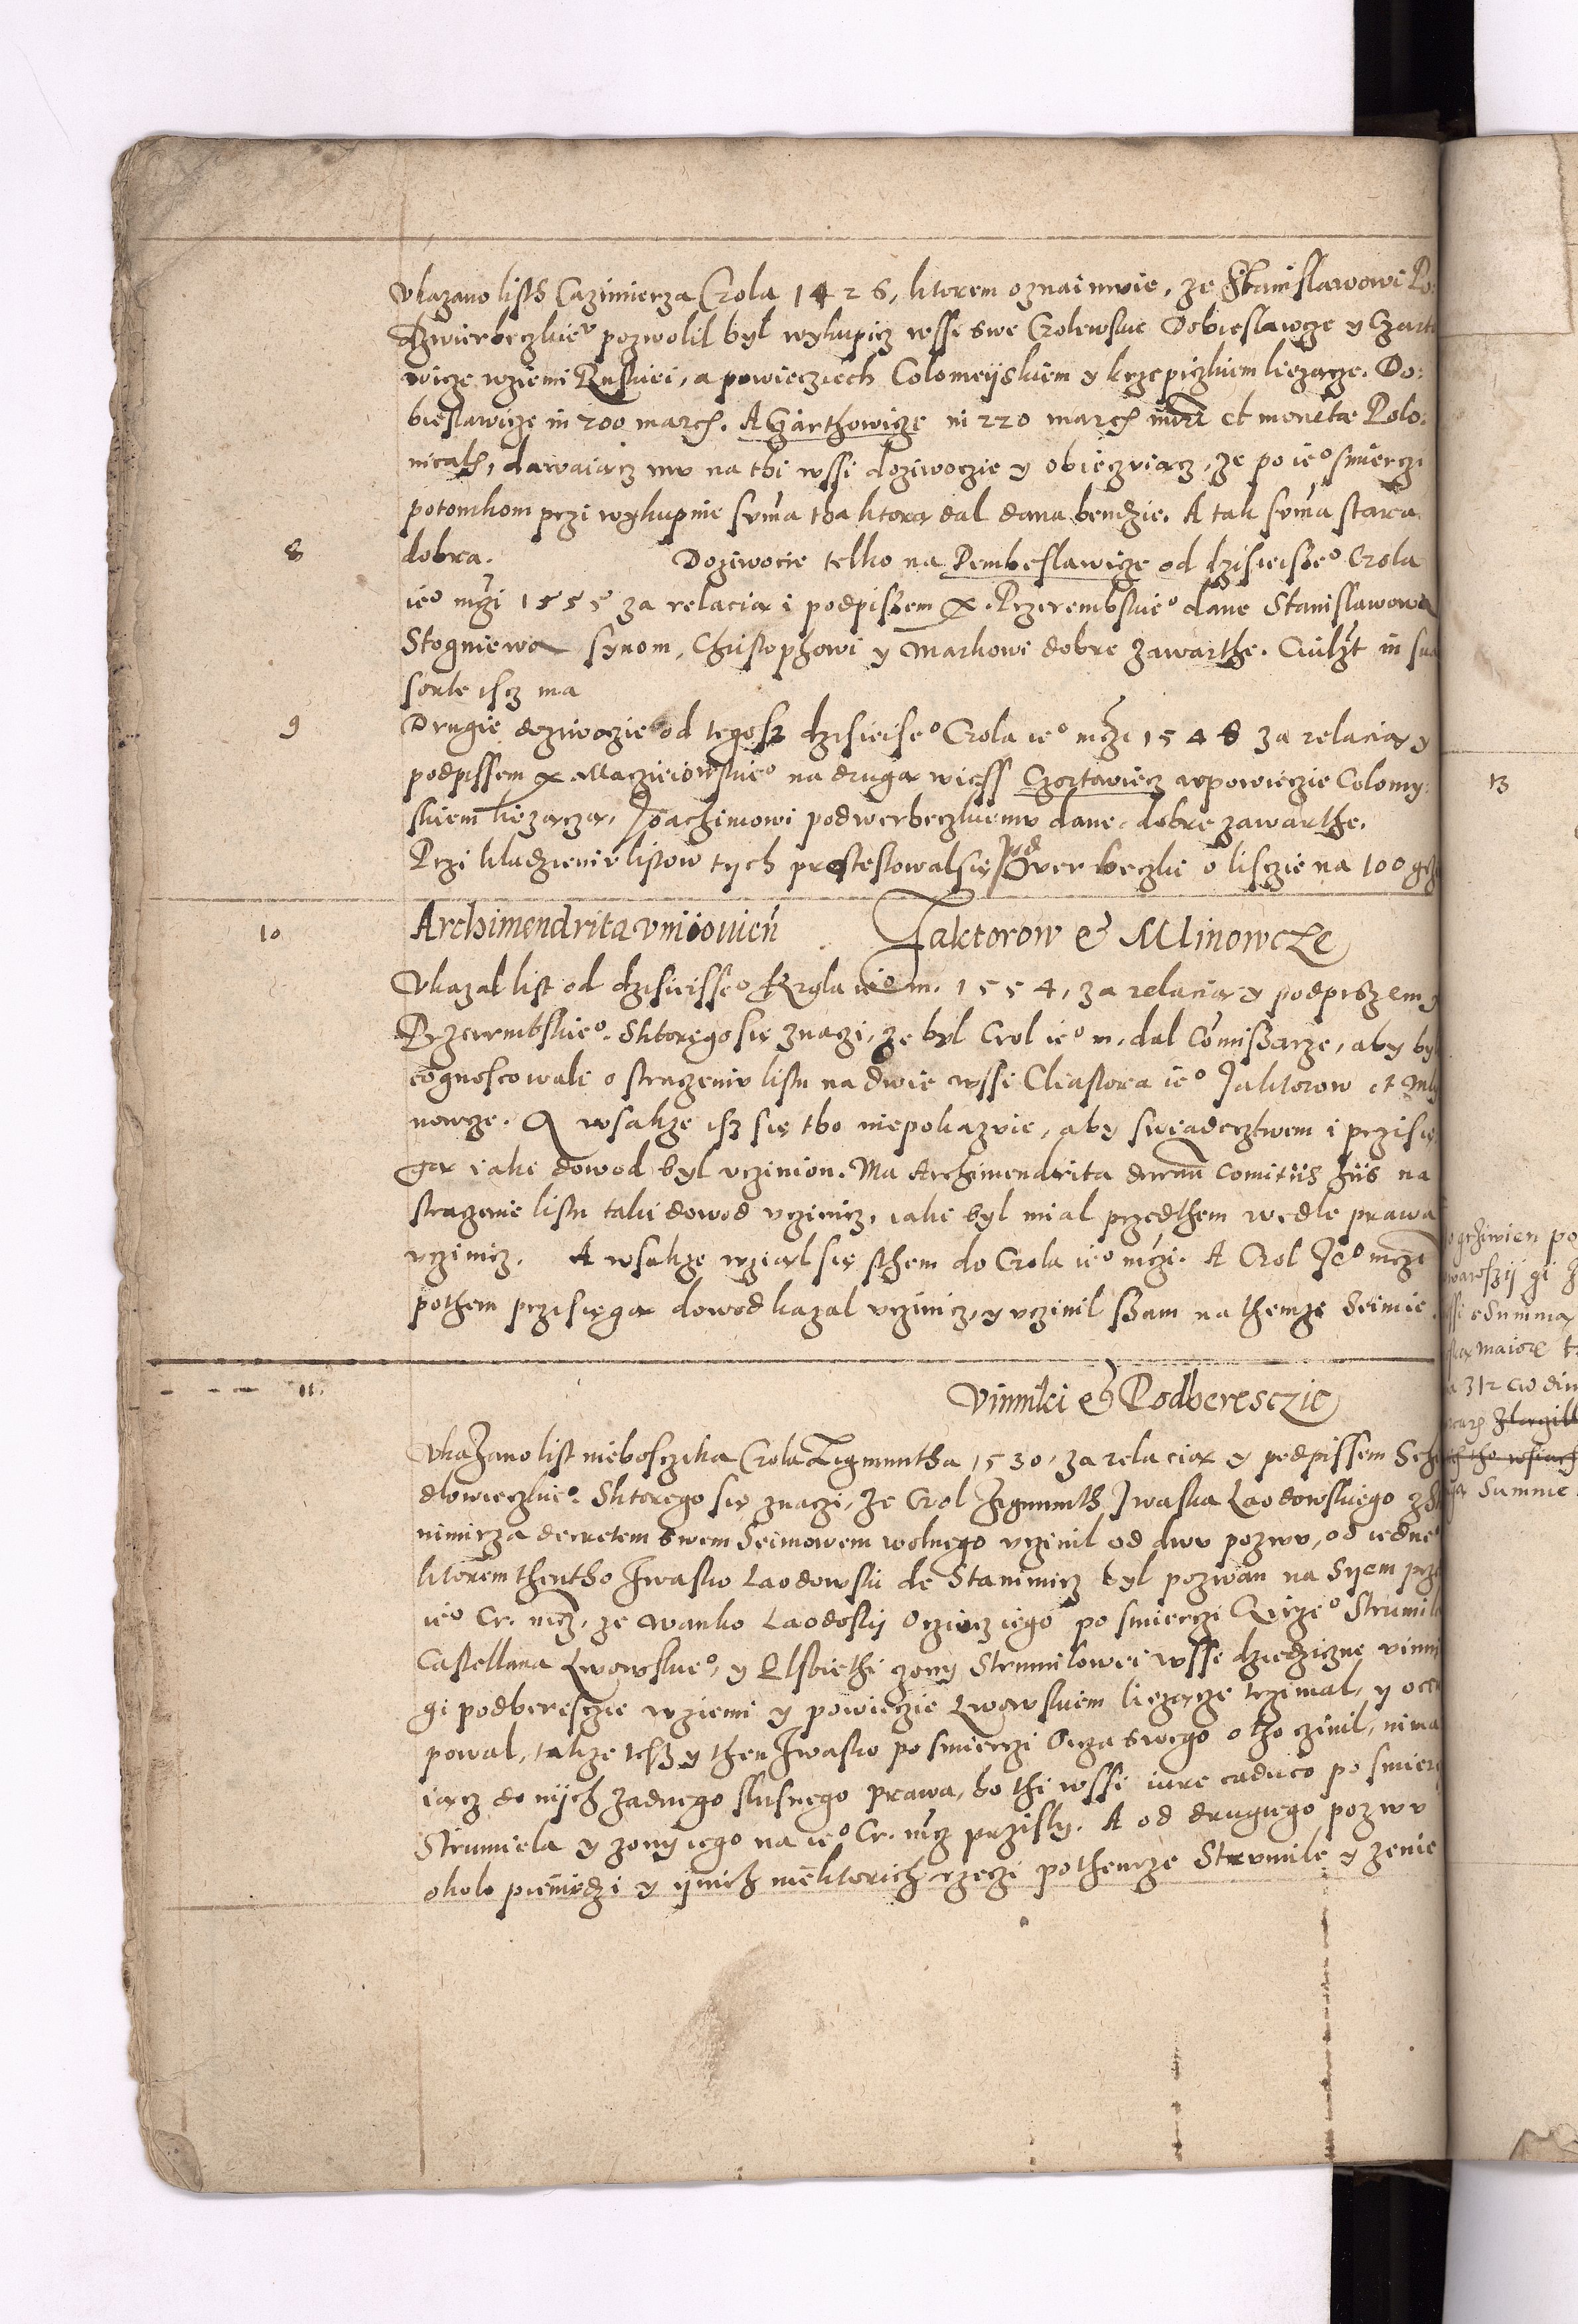 Ukazano listh Cazimierza Crola 1426, ktorem oznaimuie, ze Stanislawowi Po:
dzwierbeczkie° pozwolil byl wykupicz wssi swe Crolewskie Dobieslawcze y Czarto
wicze wziemi Ruskiei, a powiecziech Colomeijskiem y krzepiczkiem liezacze. Do:
bieslawicze in 200 march. A Czarthowicze in 220 march nuri et monetae Polo:
nicalis, dawaiacz mv na thi wssi doziwoczie y obieczuiacz, ze po ie° smierczi
potomkom przi wykupnie suma tha ktora dal dana bendzie. A tak suma stara
8 dobra. Doziwocie telko na Dembeslawicze od dzisieisze° Crola
ie° mczi 1555 za relacia i podpiszem X. Przerembskie° dane Stanislawowa
Stogniewa synom, Christophowi y Markowi dobre zawarthe. Quilzt in sua
sorte isz ma
9 Drugie doziwoczie od tegosz dzisieise° Crola ie° mczi 1548 za relacia y
podpissem X Maczieiowskie° na druga wiess Czortowiecz wpowieczie Colomy:
skiem liezacza, Joachimowi podwerbeczkiemu dane dobre zawarthe.
Przi kladzieniu listow tych protestowal sie Pod Verbeczki o lisczie na 100 grz
10 Archimendrita vniiowien Jaktorow & Mlinowcze
Ukazal list od dzisieisse° Krola ie° m. 1554, za relacia y podpiszem X
Przerembskie°. Sktorego sie znaczi, ze byl Crol ie° m. dal Comissarze, aby by
cognoscowali o straczeniu listu na dwie wssi Cliastora ie° Jaktorow et Mly
nowcze. A wsakze isz sie tho niepokazuie, aby swiadecztwem i przisie
ga iaki dowod byl uczinion. Ma Archimendrita decretum comitiis hiis na
straczenie listu taki dowod uczinicz, iaki byl mial przedthem wedle prawa
uczinicz. A wsakze wzial sie sthem do Crola ie° mczi. A Crol Je° mczi
pothem przisiega dowod kazal uczinicz, y uczinil szam na themze Seimie.
11. Vinniki & Podberesczie
Ukazano list nieboszczika Crola Zigmuntha 1530, za relacia y podpissem Schi
dlowieczkie°. Sktorego sie znaczi, ze Crol Zigmunth Jwaska Laodowskiego z St
nimirza decretem swem Seimowem wolnego uczinil od dwu pozwu, od iedne°
ktorem thentho Jwasko Laodowski de Stanimirz byl pozwan na Syem prze
ie° Cr. mcz, ze Wanko Laodoskij Ocziecz iego po smierczi Girze° Strumila
Castellana Lwowskie°, y Elsbiethi zony Strumilowei wssi dziedziczne vinni
gi podberesczie wziemi y powieczie Lwowskiem liezacze trzimal, y occu
powal, takze tesz y then Jwasko po smierczi Oicza swego o tho czinil, nima
iacz do nych zadnego slusnego prawa, bo thi wssi iure caduco po smierc
Strumiela y zony iego na ie° Cr. mcz przisly. A od drugiego pozwu
okolo pieniedzi y ijnich niektorich rzeczi pothemze Strumile y zenie
13
grziwien po
waroszij gi
ssi e Summa
maiore
312 cw din
Summe